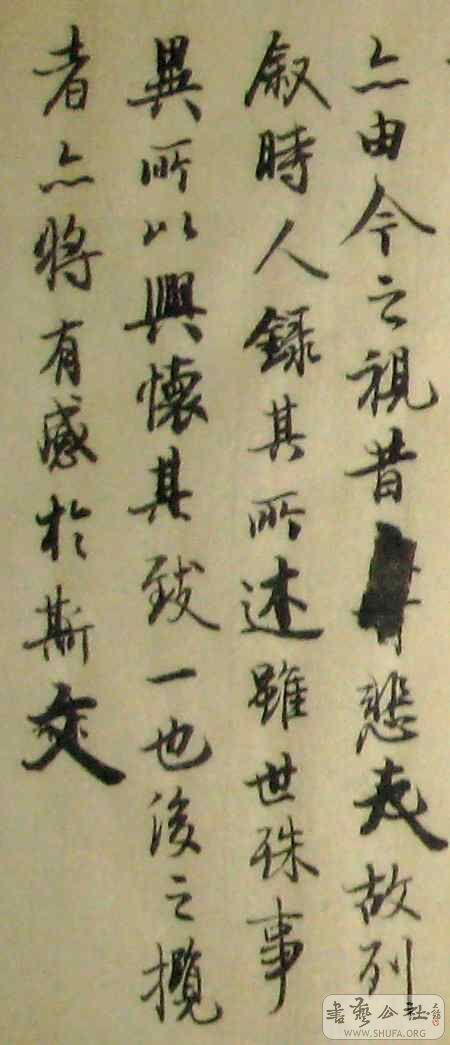 亦由今之視昔悲夫故列
叙時人録其所述雖世殊事
異所以興懷其致一也後之攬
者亦將有感於斯文
書藝公社
WWW.SHUFA.ORG